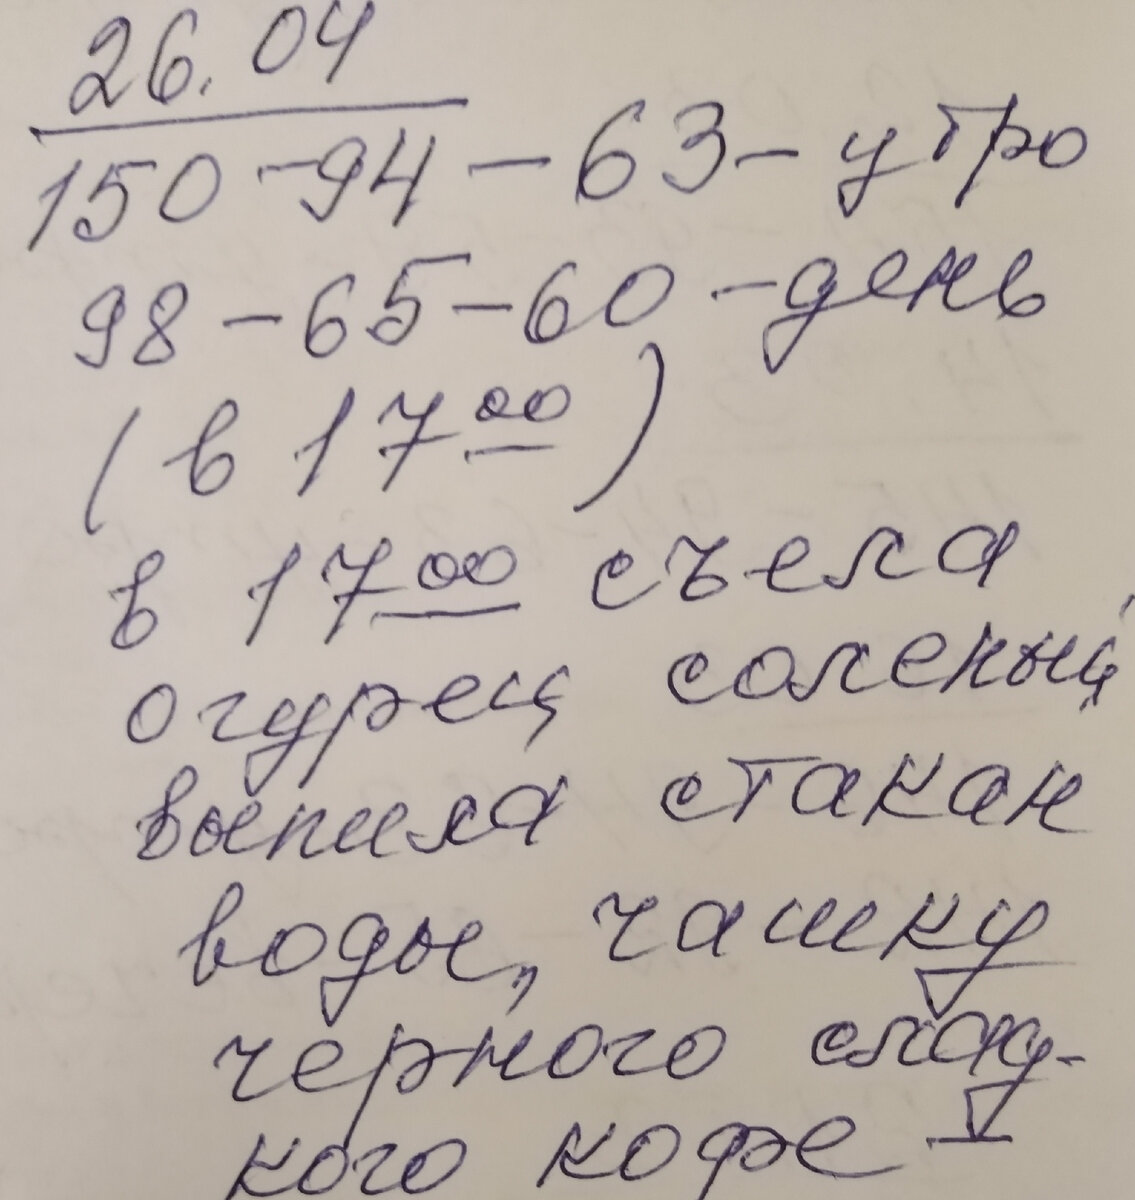 26.04
150-94-63-утро
98-65-60-день
(в 17⁰⁰)
в 17⁰⁰ съела
огурец соленый,
выпила стакан
воды, чашку
черного слад-
кого кофе